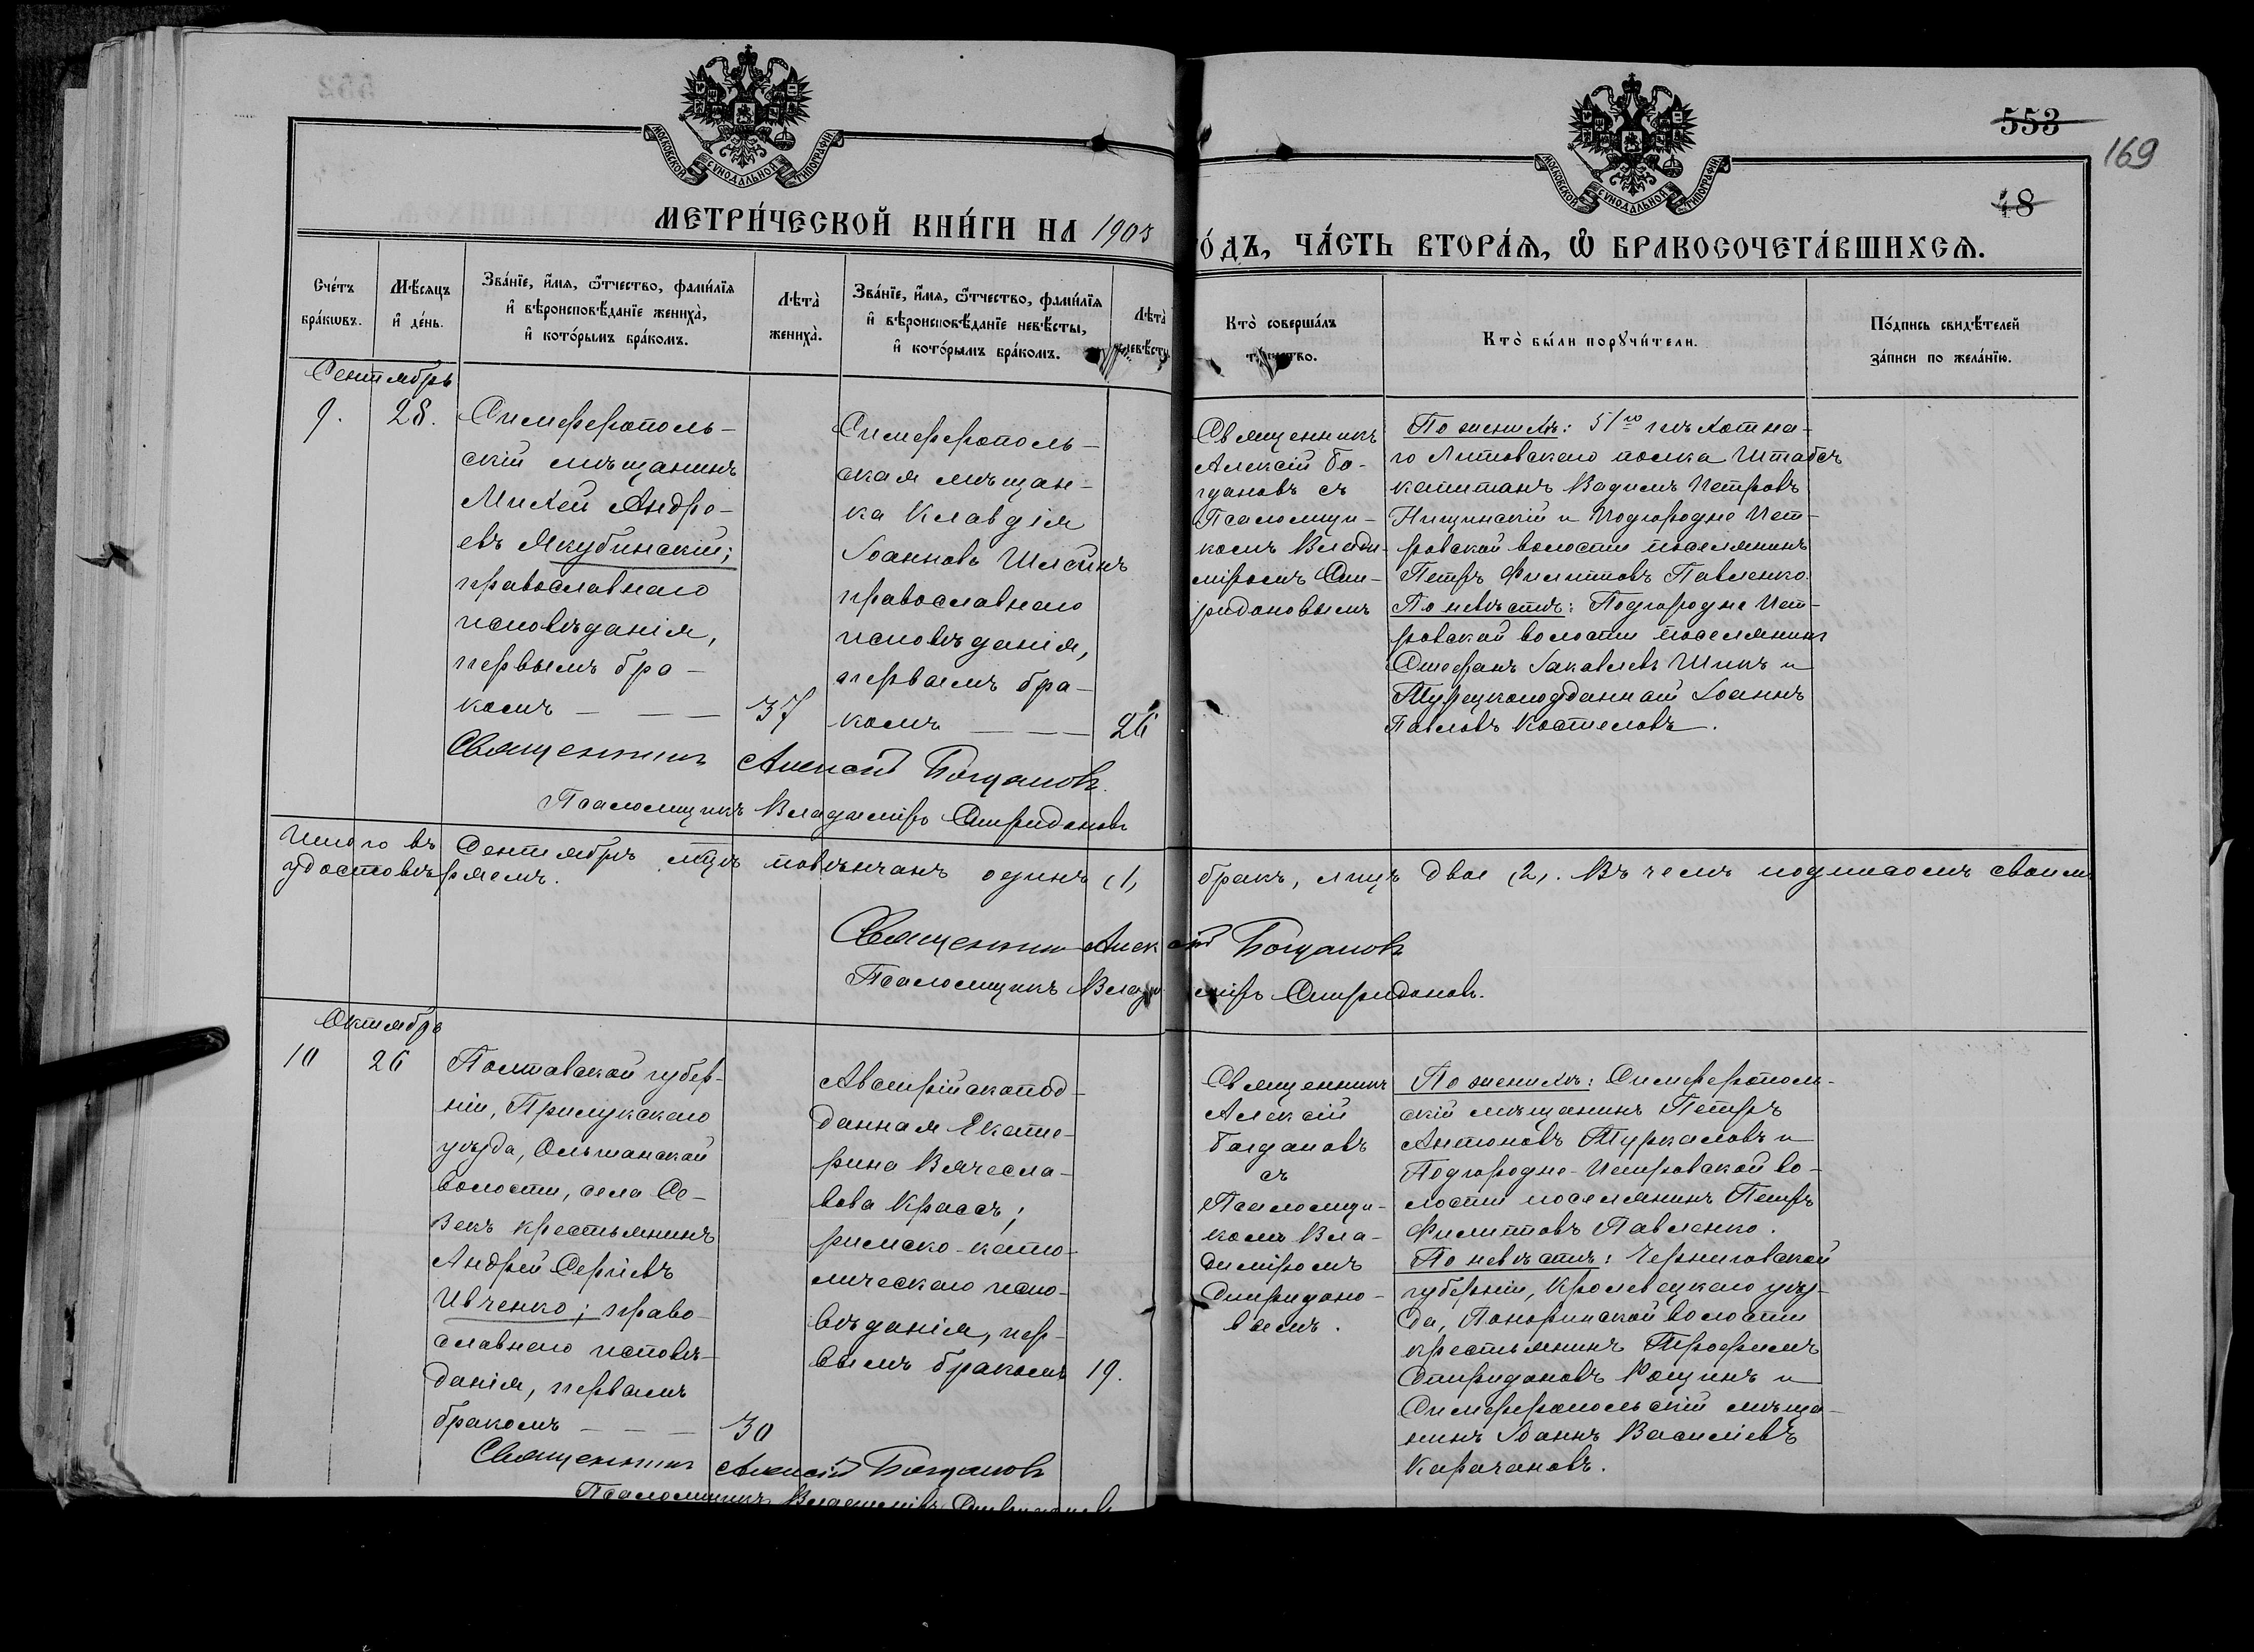 553
169
48
МОСКОВСКОЙ СУНОДАЛЬНОЙ ТИПОГРАФІИ
МОСКОВСКОЙ СУНОДАЛЬНОЙ ТИПОГРАФІИ
МЕТРИ́ЧЕСКОЙ КНИ́ГИ НА 1903
О́ДЪ, ЧА́СТЬ ВТОРА́Ѧ, Ѽ БРАКОСОЧЕТА́ВШИХСѦ.
Сче́тъ
бра́кѡвъ.
Мѣ́сѧцъ
и҆ де́нь.
Зва́нїе, и҆́мѧ, ѻ҆́тчество, фами́лїѧ
и҆ вѣроисповѣ́данїе жениха̀,
и҆ кото́рымъ бра́комъ.
Лѣта̀
жениха̀.
Зва́нїе, и҆́мѧ, ѻ҆́тчество, фами́лїѧ
и҆ вѣроисповѣ́данїе невѣ́сты,
и҆ кото́рымъ бра́комъ.
Лѣта̀
невѣ́сты
Кто̀ соверша́лъ
та́инство.
Кто̀ бы́ли порꙋчи́тели.
По́дпись свидѣ́телей
за́писи по жела́нїю.
Сентябрь
9.
28.
Симферополь-
скій мѣщанинъ
Михей Андре-
евъ Якубинскій;
православнаго
исповѣданія,
первымъ бра-
комъ — — —
37
Симферополь-
ская мѣщан-
ка Клавдія
Іоаннова
православнаго
исповѣданія,
первымъ бра-
комъ — — —
26
Священникъ
Алексій Бо-
гдановъ съ
Псаломщи-
комъ Влади-
міромъ Спи-
ридоновымъ
По женихѣ: 51го пѣхотна-
го Литовскаго полка Штабсъ
капитанъ Вадимъ Петровъ
Нищинскій и Подгородне Пет-
ровской волости поселянинъ
Петръ Филипповъ Павленко.
По невѣстѣ: Подгородне Пет-
ровской волости поселянинъ
Стефанъ Іаковлевъ Шикъ и
Турецкоподданный Іоаннъ
Павловъ Костеловъ.
Священникъ Алексій Богдановъ.
Псаломщикъ Владиміръ Спиридоновъ
Итого въ Сентябрѣ мѣцѣ повѣнчанъ одинъ (1) бракъ, лицъ двое (2). Въ чемъ подписомъ своимъ
удостовѣряемъ.
Священникъ Алексій Богдановъ
Псаломщикъ Владиміръ Спиридоновъ.
Октябрь
10
26
Полтавской губер-
ніи, Прилукскаго
уѣзда, Ольшанской
волости, села Се-
векъ крестьянинъ
Андрей Сергіевъ
Ивченко; право-
славнаго исповѣ-
данія, первымъ
бракомъ — — —
30
Австрійскопод-
данная Екате-
рина Вячесла-
вова Крассъ;
римско-като-
лическаго испо-
вѣданія, пер-
вымъ бракомъ
19.
Священникъ
Алексій
Богдановъ
съ
Псаломщи-
комъ Вла-
диміромъ
Спиридоно-
вымъ.
По женихѣ: Симферополь-
скій мѣщанинъ Петръ
Антоновъ Туркаловъ и
Подгородне-Петровской во-
лости поселянинъ Петръ
Филипповъ Павленко.
По невѣстѣ: Черниговской
губерніи, Кролевецкаго уѣз-
да, Понорницкой волости
крестьянинъ Трофимъ
Спиридоновъ Рощинъ и
Симферопольскій мѣща-
нинъ Іоаннъ Василіевъ
Карачановъ.
Священникъ Алексій Богдановъ
Псаломщикъ Владиміръ Спиридоновъ